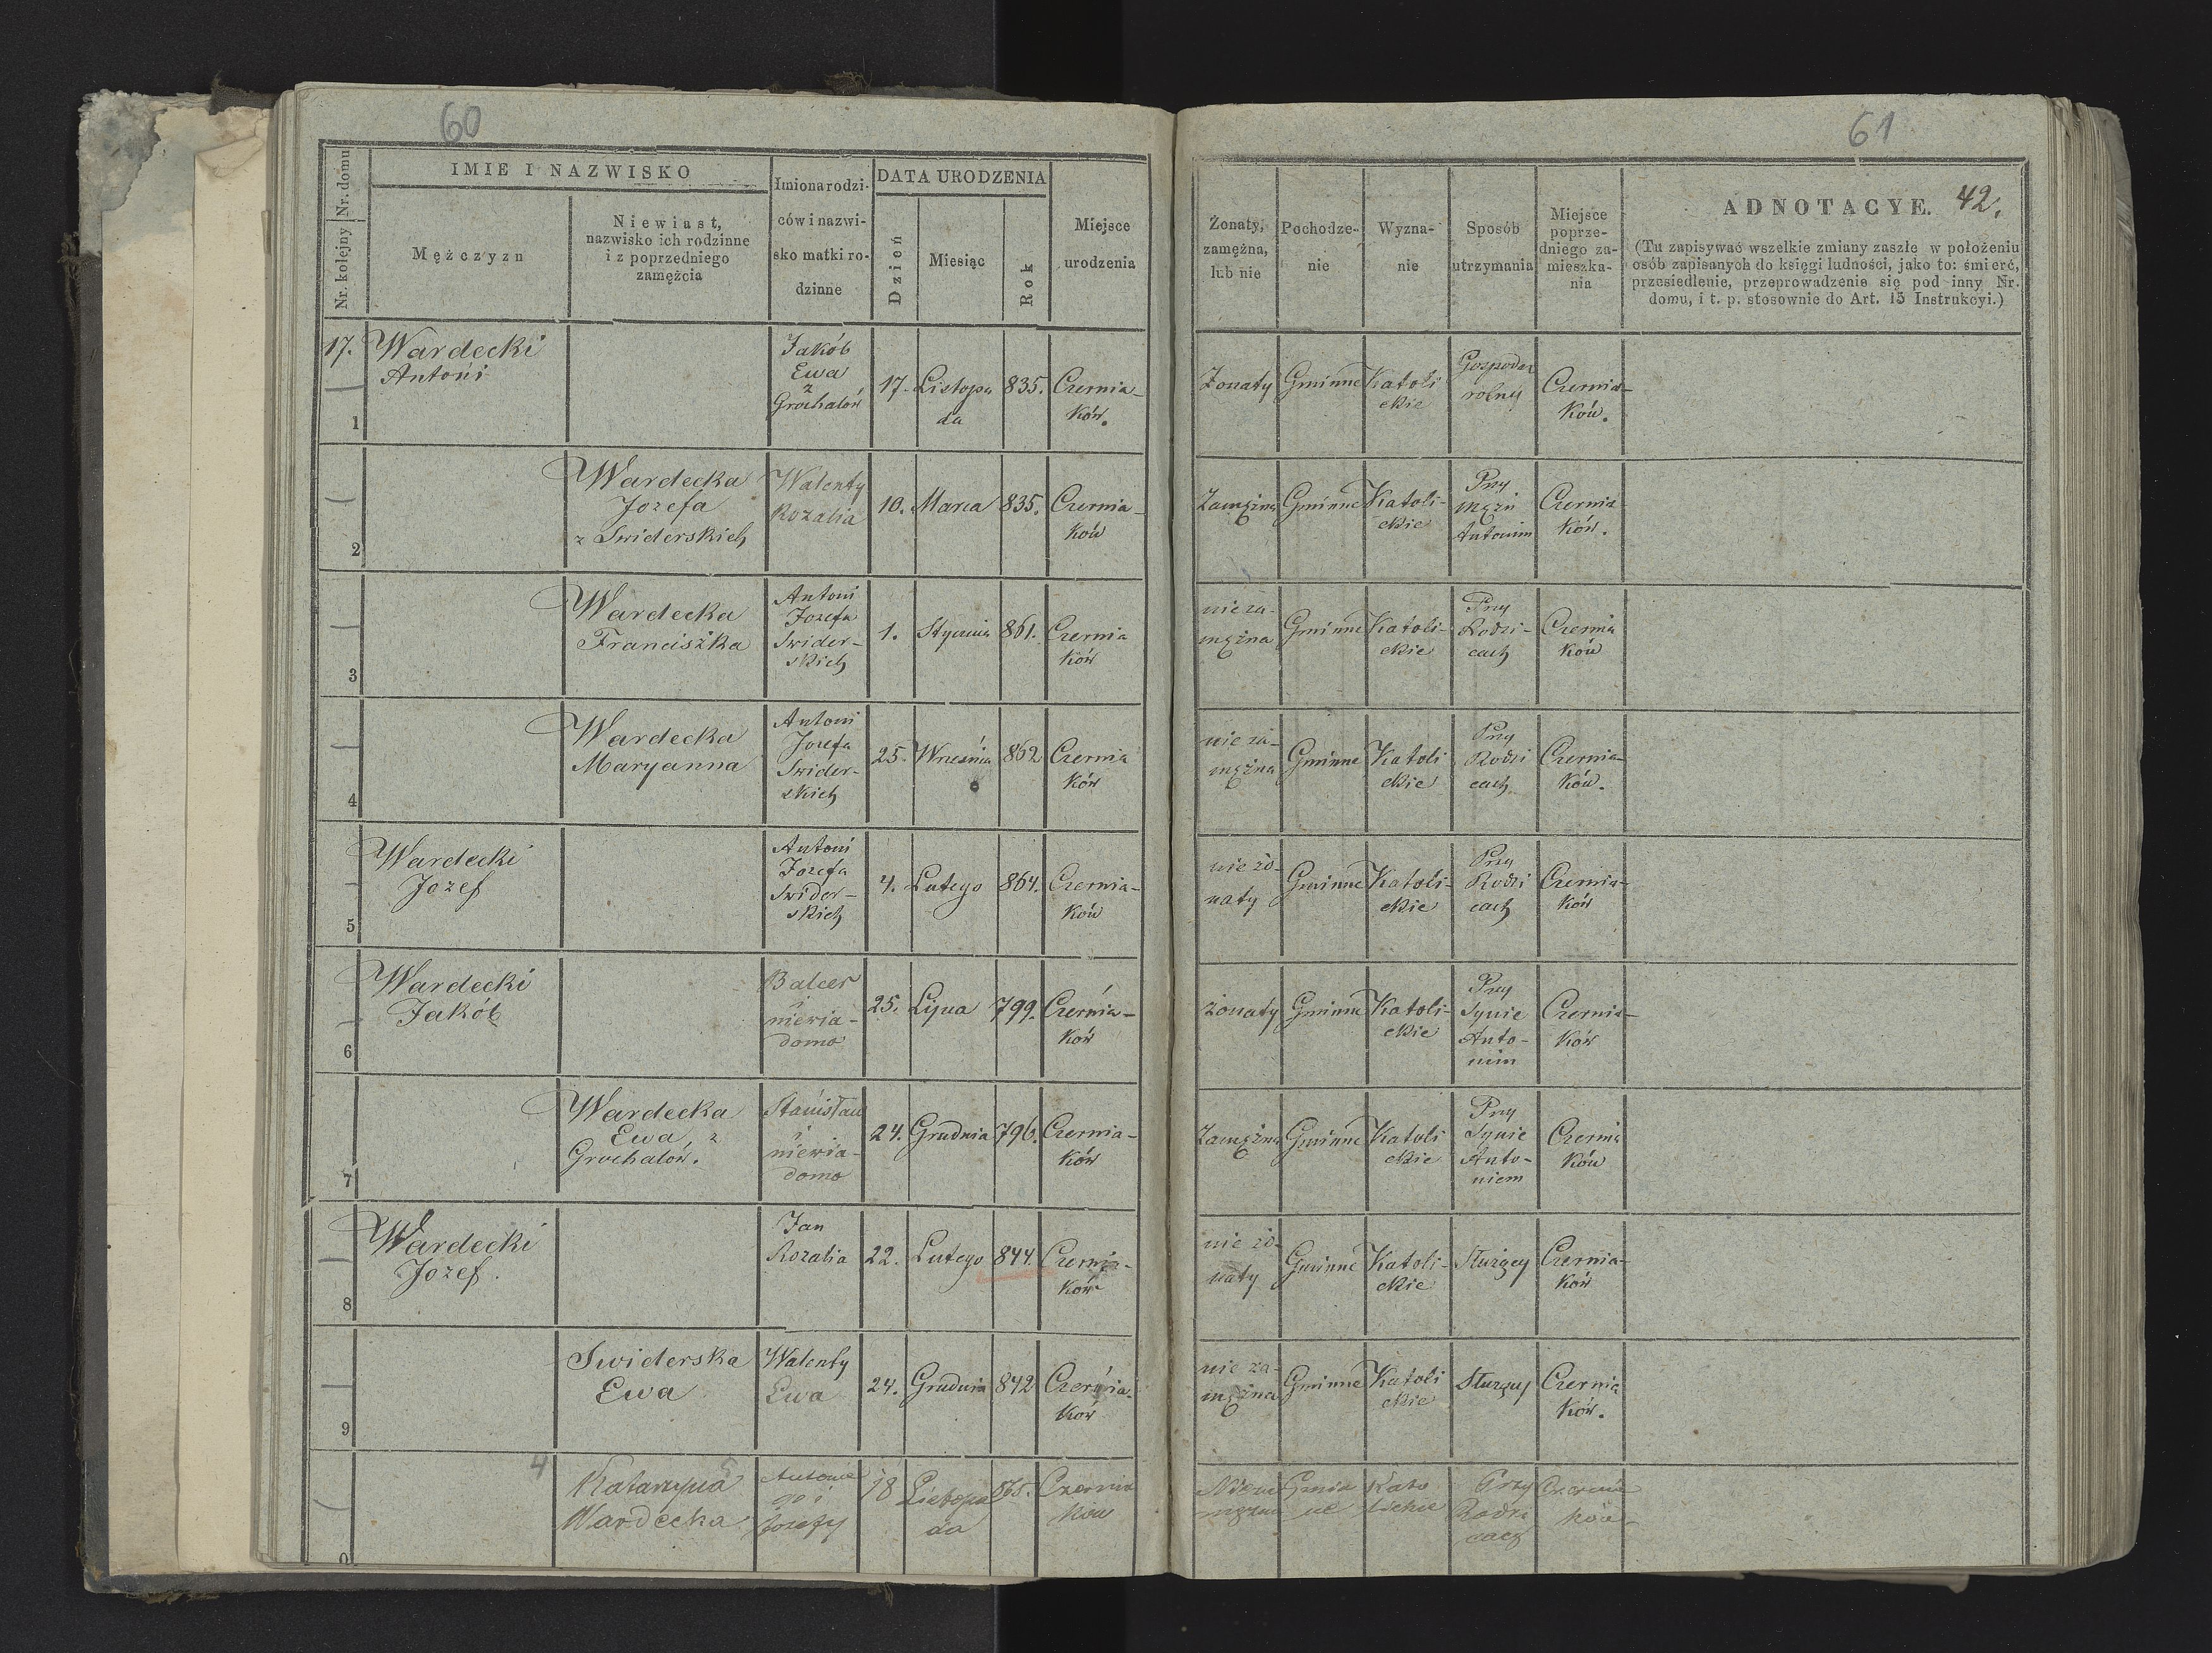 60
Nr. kolejny Nr. domu
IMIE I NAZWISKO
Mężczyzn
Niewiast,
nazwisko ich rodzinne
i z poprzedniego
zamęźcia
Imiona rodzi-
ców i nazwi-
sko matki ro-
dzinne
DATA URODZENIA
Dzień
Miesiąc
Rok
Miejsce
urodzenia
17.
1
Wardecki
Antoni
Jakób
Ewa
z
Grochalów
17.
Listopa
da
835.
Czernia-
ków.
2
Wardecka
Jozefa
z Swiderskich
Walenty
Rozalia
10.
Marca
835.
Czernia-
ków
3
Wardecka
Franciszka
Antoni
Jozefa
Swider-
skich
1.
Stycznia
861.
Czernia
ków
4
Wardecka
Maryanna
Antoni
Jozefa
Swider-
skich
25.
Września
862
Czernia
ków
5
Wardecki
Jozef
Antoni
Jozefa
Swider-
skich
4.
Lutego
864.
Czernia-
ków
6
Wardecki
Jakób
Balcer
i
niewia-
domo
25.
Lipca
799.
Czernia-
ków
7
Wardecka
Ewa z
Grochalów.
Stanisław
i
niewia-
domo
24.
Grudnia
796.
Czernia-
ków
8
Wardecki
Jozef.
Jan
Rozalia
22.
Lutego
844.
Czernia-
ków
9
Swiderska
Ewa
Walenty
Ewa
24.
Grudnia
842
Czernia-
ków
0
4
Katarzyna
Wardecka
Antonie
go i
Jozefy
18
Listopa
da
865.
Czernia
ków
61
42.
Żonaty,
zamężna,
lub nie
Pochodze-
nie
Wyzna-
nie
Sposób
utrzymania
Miejsce
poprze-
dniego za-
mieszka-
nia
ADNOTACYE.
(Tu zapisywać wszelkie zmiany zaszłe w położeniu
osób zapisanych do księgi ludności, jako to: śmierć,
przesiedlenie, przeprowadzenie się pod inny Nr.
domu, i t. p. stosownie do Art. 15 Instrukcyi.)
Żonaty
Gminne
Katoli
ckie
Gospodar
rolny
Czernia-
ków.
Zamężna
Gminne
Katoli-
ckie
Przy
mężu
Antonim
Czernia
ków.
nie za-
mężna
Gminne
Katoli-
ckie
Przy
Rodzi-
cach
Czernia
ków
nie za-
mężna
Gminne
Katoli
ckie
Przy
Rodzi
cach
Czernia-
ków.
nie żo-
naty
Gminne
Katoli-
ckie
Przy
Rodzi
cach
Czernia-
ków
żonaty
Gminne
Katoli-
ckie
Przy
Synie
Anto-
nim
Czernia-
ków
Zamężna
Gminne
Katoli
ckie
Przy
Synie
Anto-
niem
Czernia
ków
nie żo-
naty
Gminne
Katoli-
ckie
Służący
Czernia-
ków
nie za-
mężna
Gminne
Katoli
ckie
Czernia
ków.
Nieza
mężna
Gmin
ne
Kato
lickie
Przy
Rodzi
cach
Czernia
ków